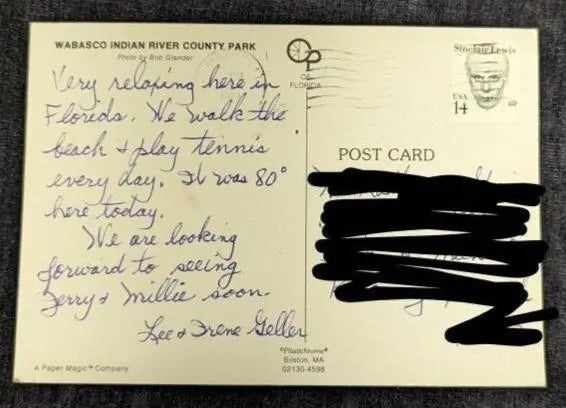 WABASCO INDIAN RIVER COUNTY PARK
Photo by Bob Glander
Very relaxing here in
Florida. We walk the
beach & play tennis
every day. It was 80°
here today.
We are looking
forward to seeing
Jerry & Millie soon.
Lee & Irene Geller
A Paper Magic™ Company
OP
OF
FLORIDA
"Plastichrome®
Boston, MA
02130-4598
Sinclair Lewis
USA
14
POST CARD